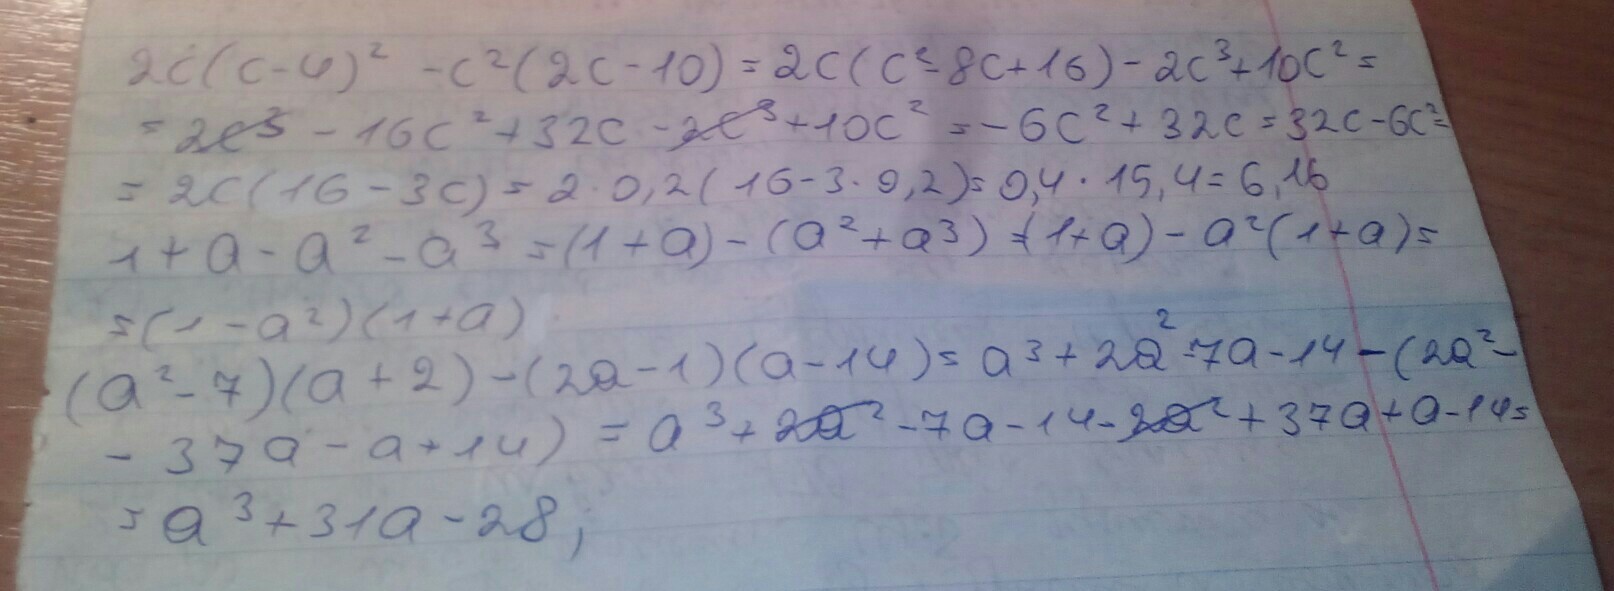 2c(c-4)² -c²(2c-10)=2c(c²-8c+16)-2c³+10c²=
=2c³-16c²+32c-2c³+10c²=-6c²+32c=32c-6c²=
=2c(16-3c)=2·0,2(16-3·0,2)=0,4·15,4=6,16
1+a-a²-a³=(1+a)-(a²+a³)=(1+a)-a²(1+a)=
=(1-a²)(1+a)
(a²-7)(a+2)-(2a-1)(a-14)=a³+2a²-7a-14-(2a²-
-37a-a+14)=a³+2a²-7a-14-2a²+37a+a-14=
=a³+31a-28;